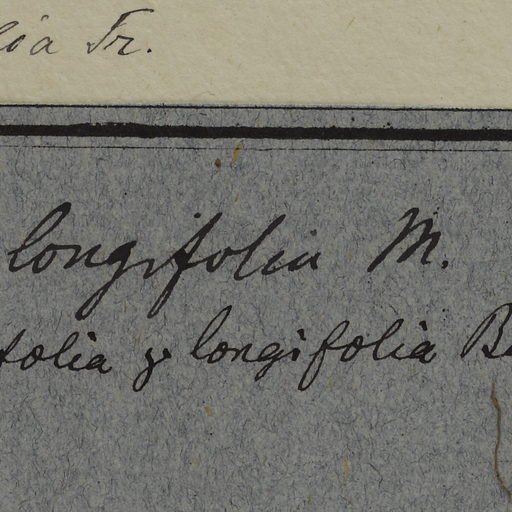 lia Fr.
longifolia M.
folia γ longifolia B